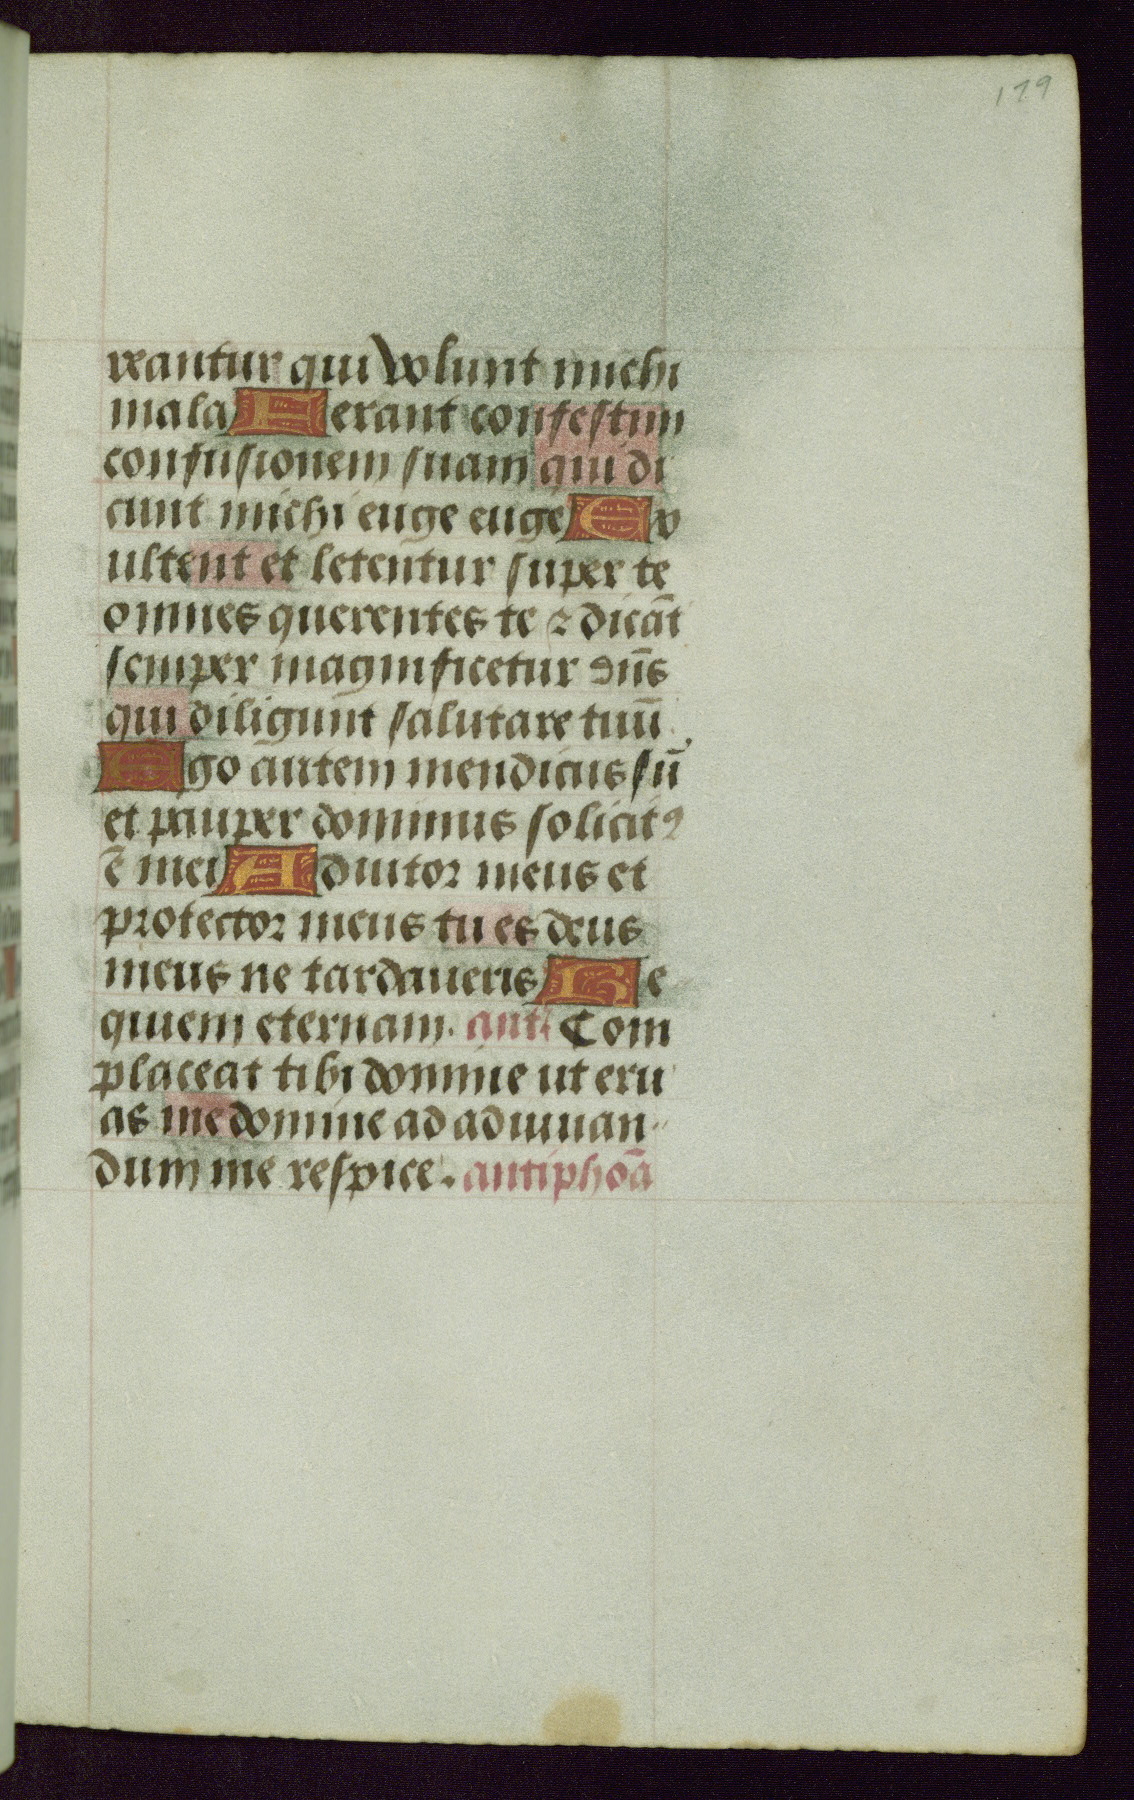 179
reantur qui volunt michi
mala Ferant confestim
confusionem suam qui di
cunt michi euge euge Ex
ultent et letentur super te
omnes querentes te ⁊ dicāt
semper magnificetur dn̄s
qui diligunt salutare tuū
Ego autem mendicus sū
et pauper dominus solicitꝰ
ē mei Adiutor meus et
protector meus tu es deus
meus ne tardaueris Re
quiem eternam. ant Com
placeat tibi domine ut eru
as me domine ad adiuuan
dum me respice. antiphōa